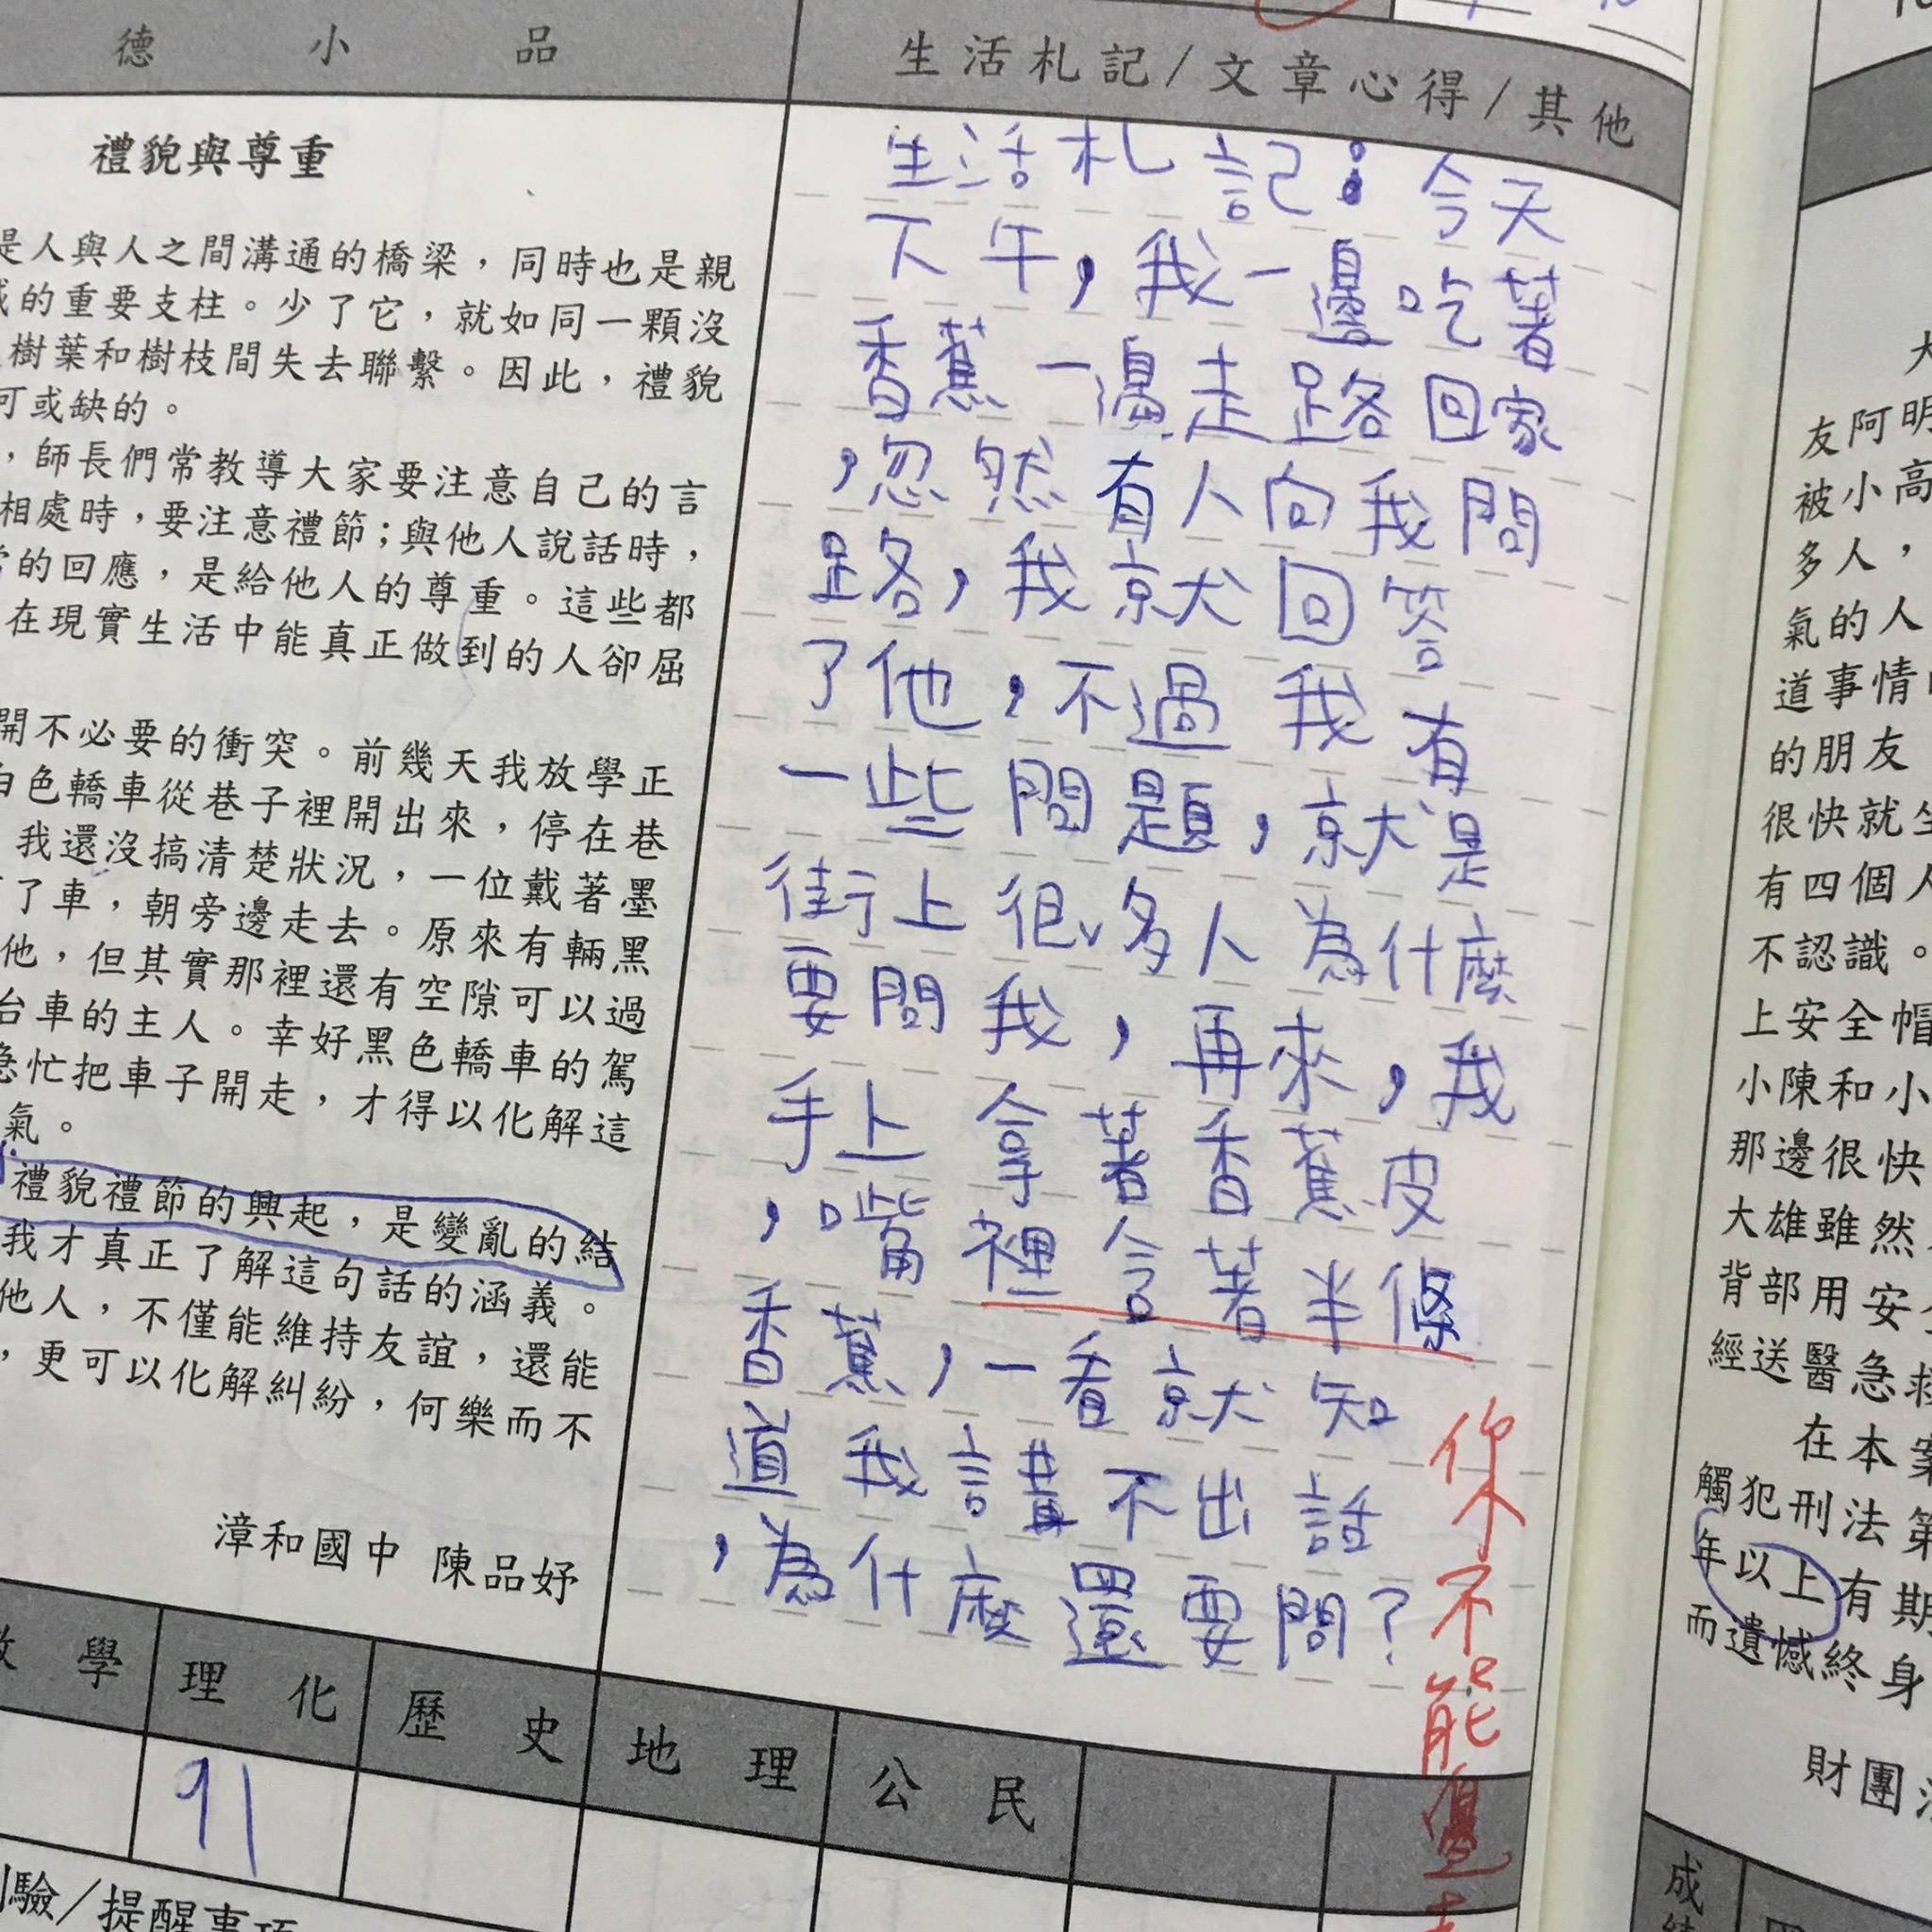 德小品
禮貌與尊重
是人與人之間溝通的橋梁，同時也是親
的重要支柱。少了它，就如同一顆沒
樹葉和樹枝間失去聯繫。因此，禮貌
可或缺的。
，師長們常教導大家要注意自己的言
相處時，要注意禮節；與他人說話時，
的回應，是給他人的尊重。這些都
在現實生活中能真正做到的人卻屈
開不必要的衝突。前幾天我放學正
白色轎車從巷子裡開出來，停在巷
我還沒搞清楚狀況，一位戴著墨
了車，朝旁邊走去。原來有輛黑
他，但其實那裡還有空隙可以過
台車的主人。幸好黑色轎車的駕
急忙把車子開走，才得以化解這
氣。
禮貌禮節的興起，是變亂的結
我才真正了解這句話的涵義。
他人，不僅能維持友誼，還能
，更可以化解糾紛，何樂而不
漳和國中 陳品妤
生活札記/文章心得/其他
生活札記：今天
下午，我一邊吃著
香蕉一邊走路回家
，忽然有人向我問
路，我就回答
了他，不過我有
一些問題，就是
街上很多人為什麼
要問我，再來，我
手上拿著香蕉皮
，嘴裡含著半條
香蕉，一看就知
道我講不出話
，為什麼還要問？
你不能邊
學 理化 歷史 地理 公民
91
驗/提醒事項
友阿明
被小高
多人，
氣的人
道事情
的朋友
很快就
有四個人
不認識。
上安全帽
小陳和小
那邊很快
大雄雖然
背部用安
經送醫急救
在本案
觸犯刑法第
年以上有期
而遺憾終身
財團
成